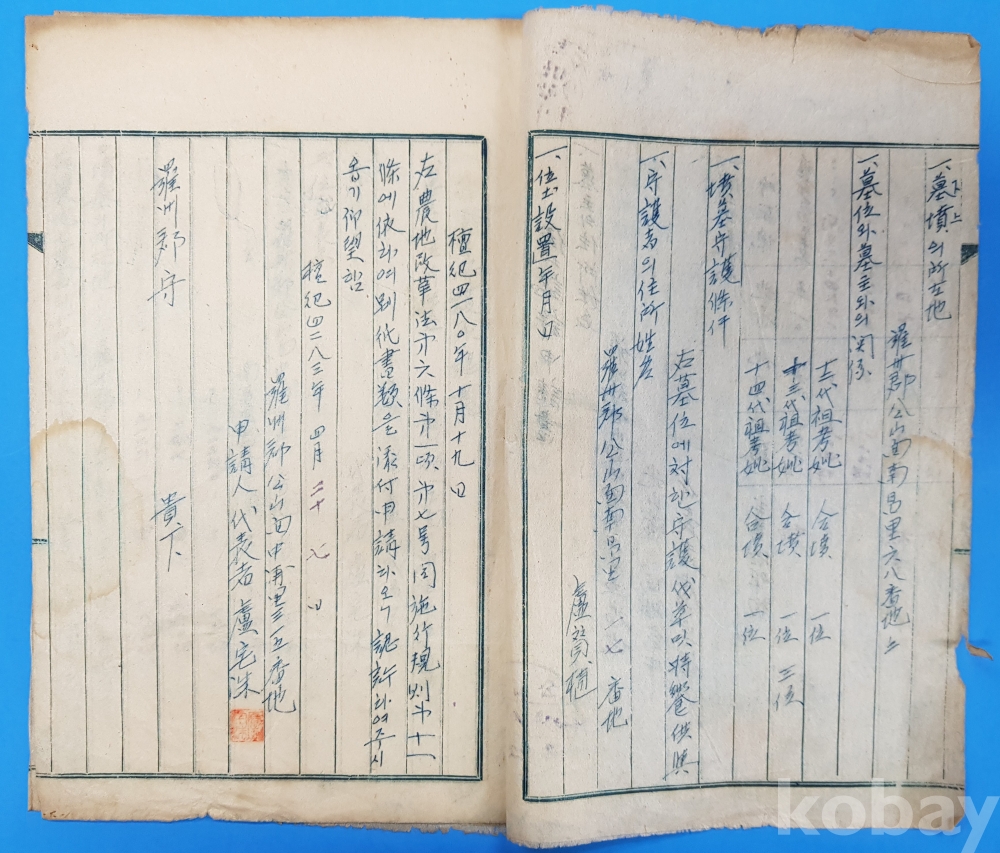 一、墓墳의所在地
羅州郡公山面南昌里六八番地上
一、墓位와墓主와의関係
十二代祖考妣 合墳 一位
十三代祖考妣 合墳 一位 三位
十四代祖考妣 合墳 一位
一、墳墓守護條件
右墓位에対한守護伐草및時饗供與
一、守護者의住所姓名
羅州郡公山面南昌里一七番地
盧
一、位土設置年月日
檀紀四一八〇年十月十九日
右農地改革法第六條第一項第七号同施行規則第十一
條에依하여別紙書類을添付申請하오니認許하여주시
옵기仰望함
檀紀四二八三年 四月 二十九日
羅州郡公山面中再里三一五番地
申請人代表者盧宅洙
羅州郡守 貴下
kobay